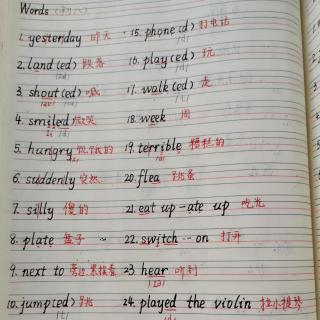 Words
1. yesterday 昨天
2. land(ed) 降落
/id/
3. shout(ed) 喊
/id/
4. smiled 微笑
/d/
5. hungry 饥饿的
6. suddenly 突然
7. silly 傻的
8. plate 盘子
9. next to 旁边.紧挨着
10. jump(ed) 跳
/t/
15. phone(d) 打电话
/d/
16. play(ed) 玩
/d/
17. walk(ed) 走
/t/
18. week 周
19. terrible 糟糕的
20. flea 跳蚤
21. eat up - ate up 吃光
22. switch ... on 打开
23. hear 听到
24. played the violin 拉小提琴
/d/